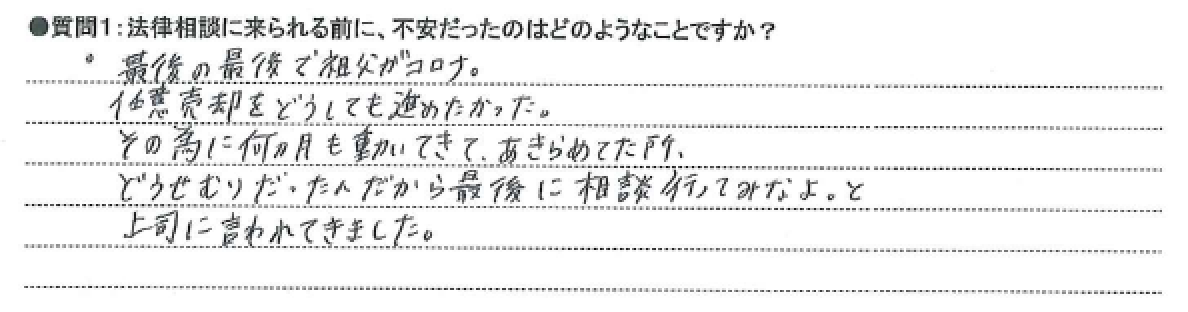 ●質問1:法律相談に来られる前に、不安だったのはどのようなことですか?
。最後の最後で祖父がコロナ。
任意売却をどうしても進めたかった。
その為に何カ月も動いてきて、あきらめてた所、
どうせむりだったんだから最後に相談行ってみなよ。と
上司に言われてきました。